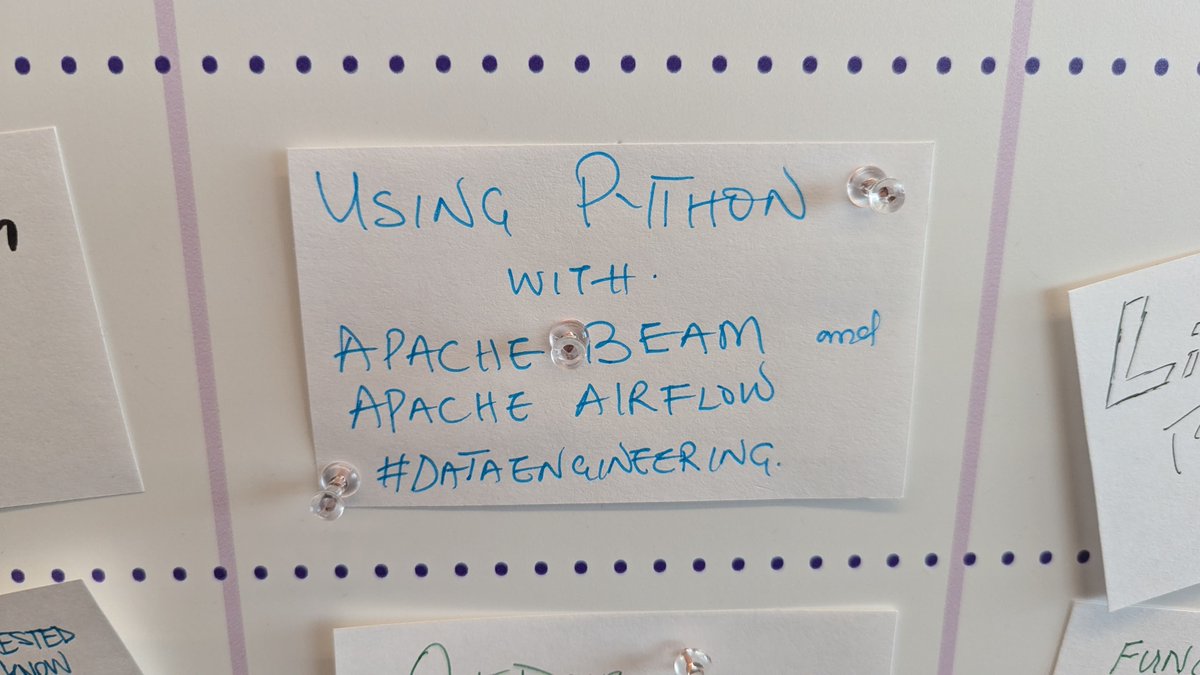 USING PYTHON
WITH.
APACHE BEAM and
APACHE AIRFLOW
#DATAENGINEERING.
KNOW